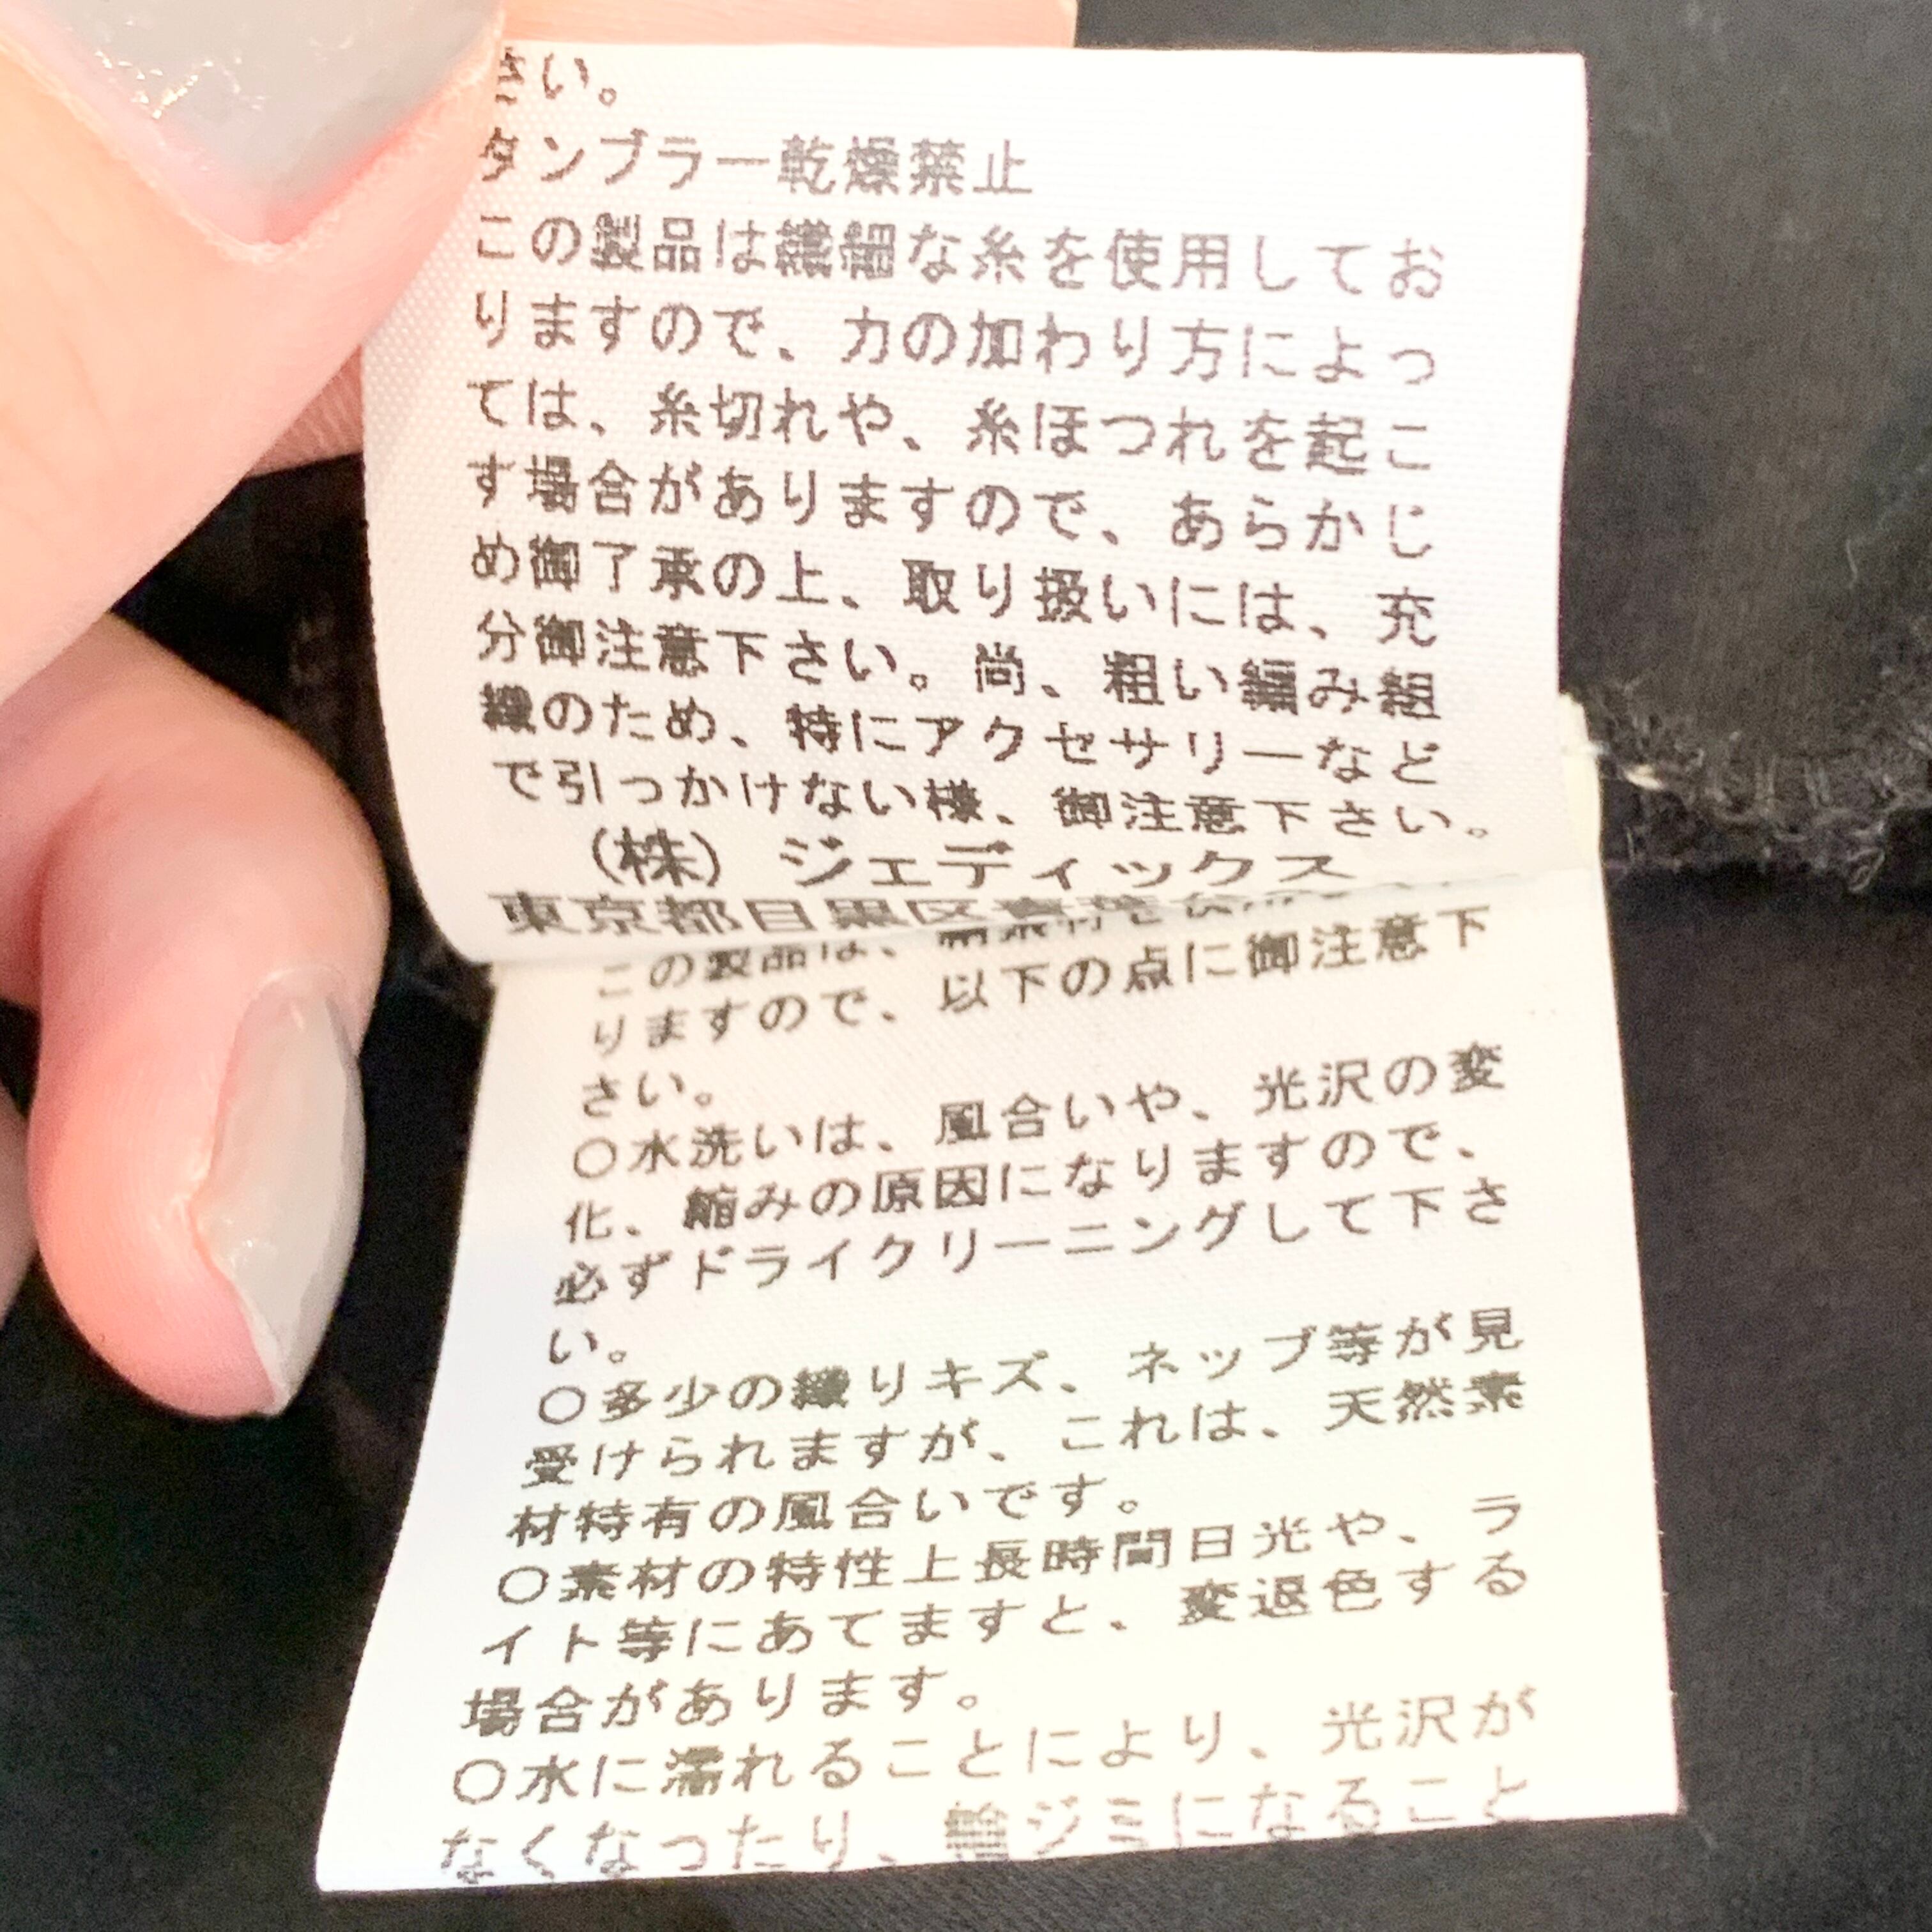 さい。
タンブラー乾燥禁止
この製品は繊細な糸を使用してお
りますので、力の加わり方によっ
ては、糸切れや、糸ほつれを起こ
す場合がありますので、あらかじ
め御了承の上、取り扱いには、充
分御注意下さい。尚、粗い編み組
織のため、特にアクセサリーなど
で引っかけない様、御注意下さい。
(株) ジェディックス
東京都目黒区
この製品は、
りますので、以下の点に御注意下
さい。
○水洗いは、風合いや、光沢の変
化、縮みの原因になりますので、
必ずドライクリーニングして下さ
い。
○多少の織りキズ、ネップ等が見
受けられますが、これは、天然素
材特有の風合いです。
○素材の特性上長時間日光や、ラ
イト等にあてますと、変退色する
場合があります。
○水に濡れることにより、光沢が
なくなったり、輪ジミになること